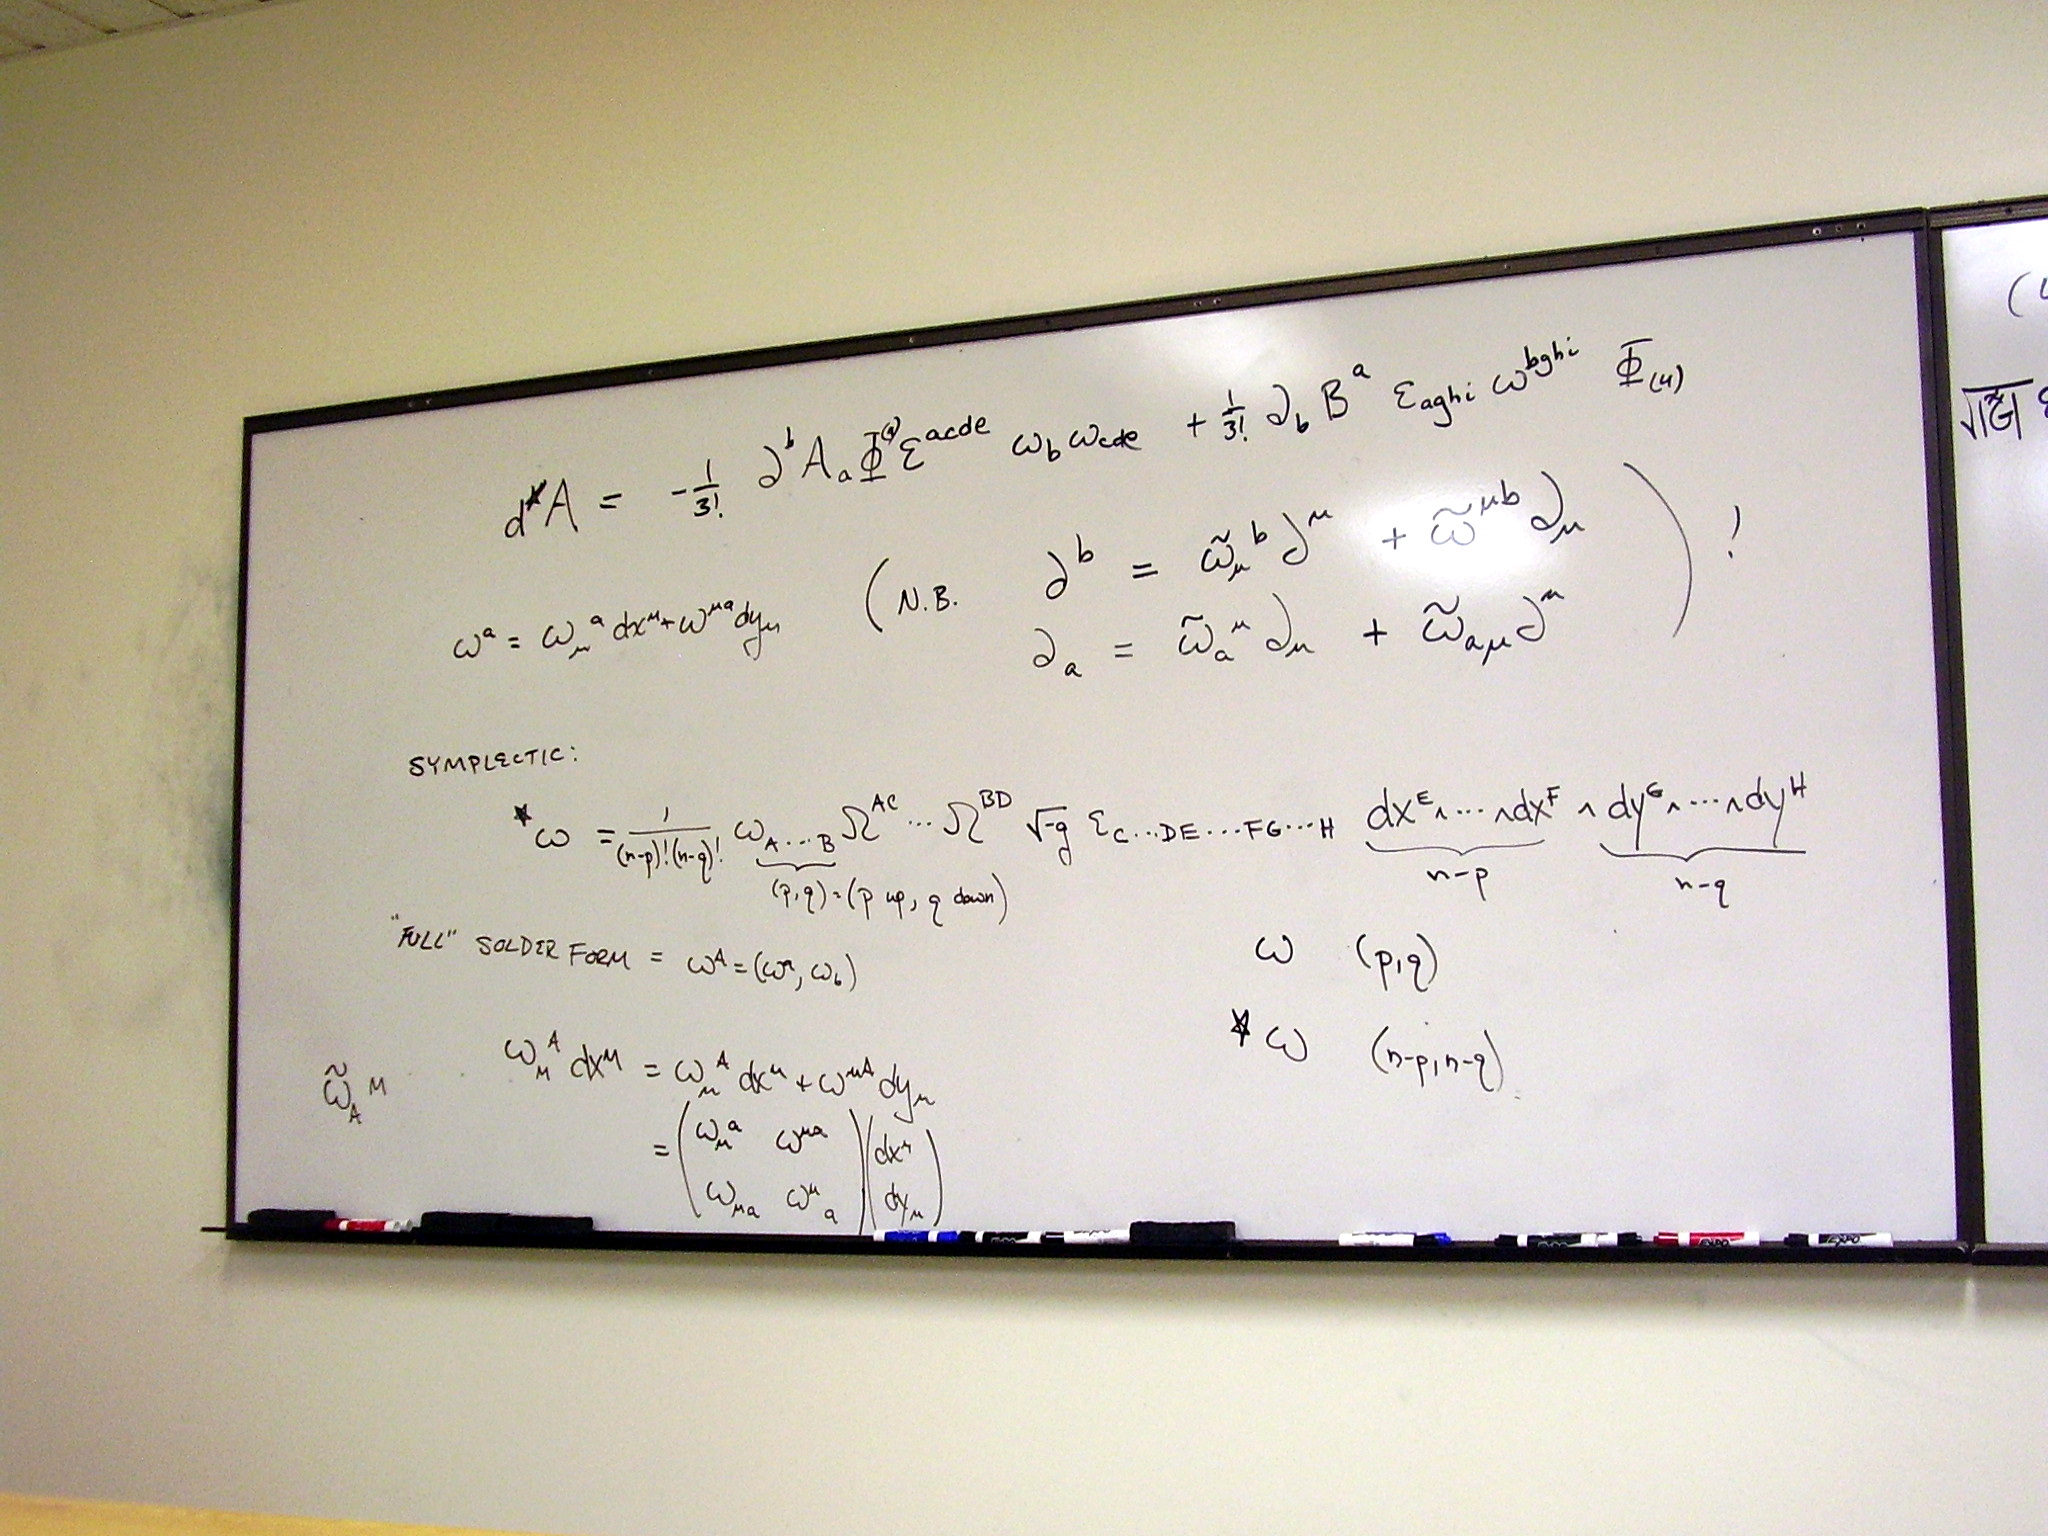 d*A = -1/3! ∂^b A_a Φ^(4) ε^{acde} ω_b ω_{cde} + 1/3! ∂_b B^a ε_{aghi} ω^{bghi} Φ_(4)
ω^a = ω_μ^a dx^μ + ω^{μa} dy_μ
(N.B. ∂^b = ω̃_μ^b ∂^μ + ω̃^{μb} ∂_μ
∂_a = ω̃_a^μ ∂_μ + ω̃_{aμ} ∂^μ ) !
SYMPLECTIC:
*ω = 1/((n-p)!(n-q)!) ω_{A...B} Ω^{AC} ... Ω^{BD} √-g ε_{C...DE...FG...H} dx^E ∧ ... ∧ dx^F ∧ dy^G ∧ ... ∧ dy^H
(p,q) = (p up, q down) n-p n-q
"FULL" SOLDER FORM = ω^A = (ω^a, ω_b)
ω (p,q)
*ω (n-p, n-q)
ω̃_A^M
ω_M^A dx^M = ω_μ^A dx^μ + ω^{μA} dy_μ
= ( ω_μ^a ω^{μa} ) ( dx^μ )
( ω_{μa} ω^μ_a ) ( dy_μ )
EXPO
EXPO